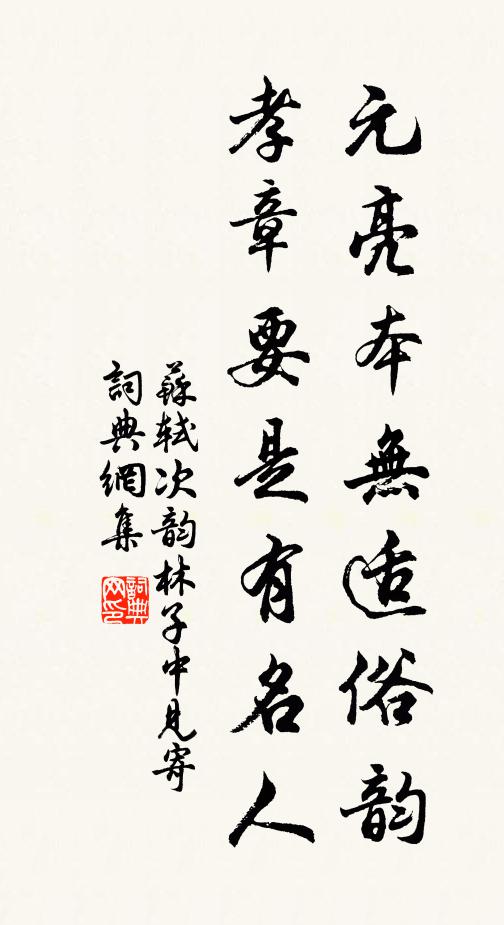 元亮本無适俗韵
孝章要是有名人
蘇軾次韵林子中見寄
詞典網集
詞典
网印